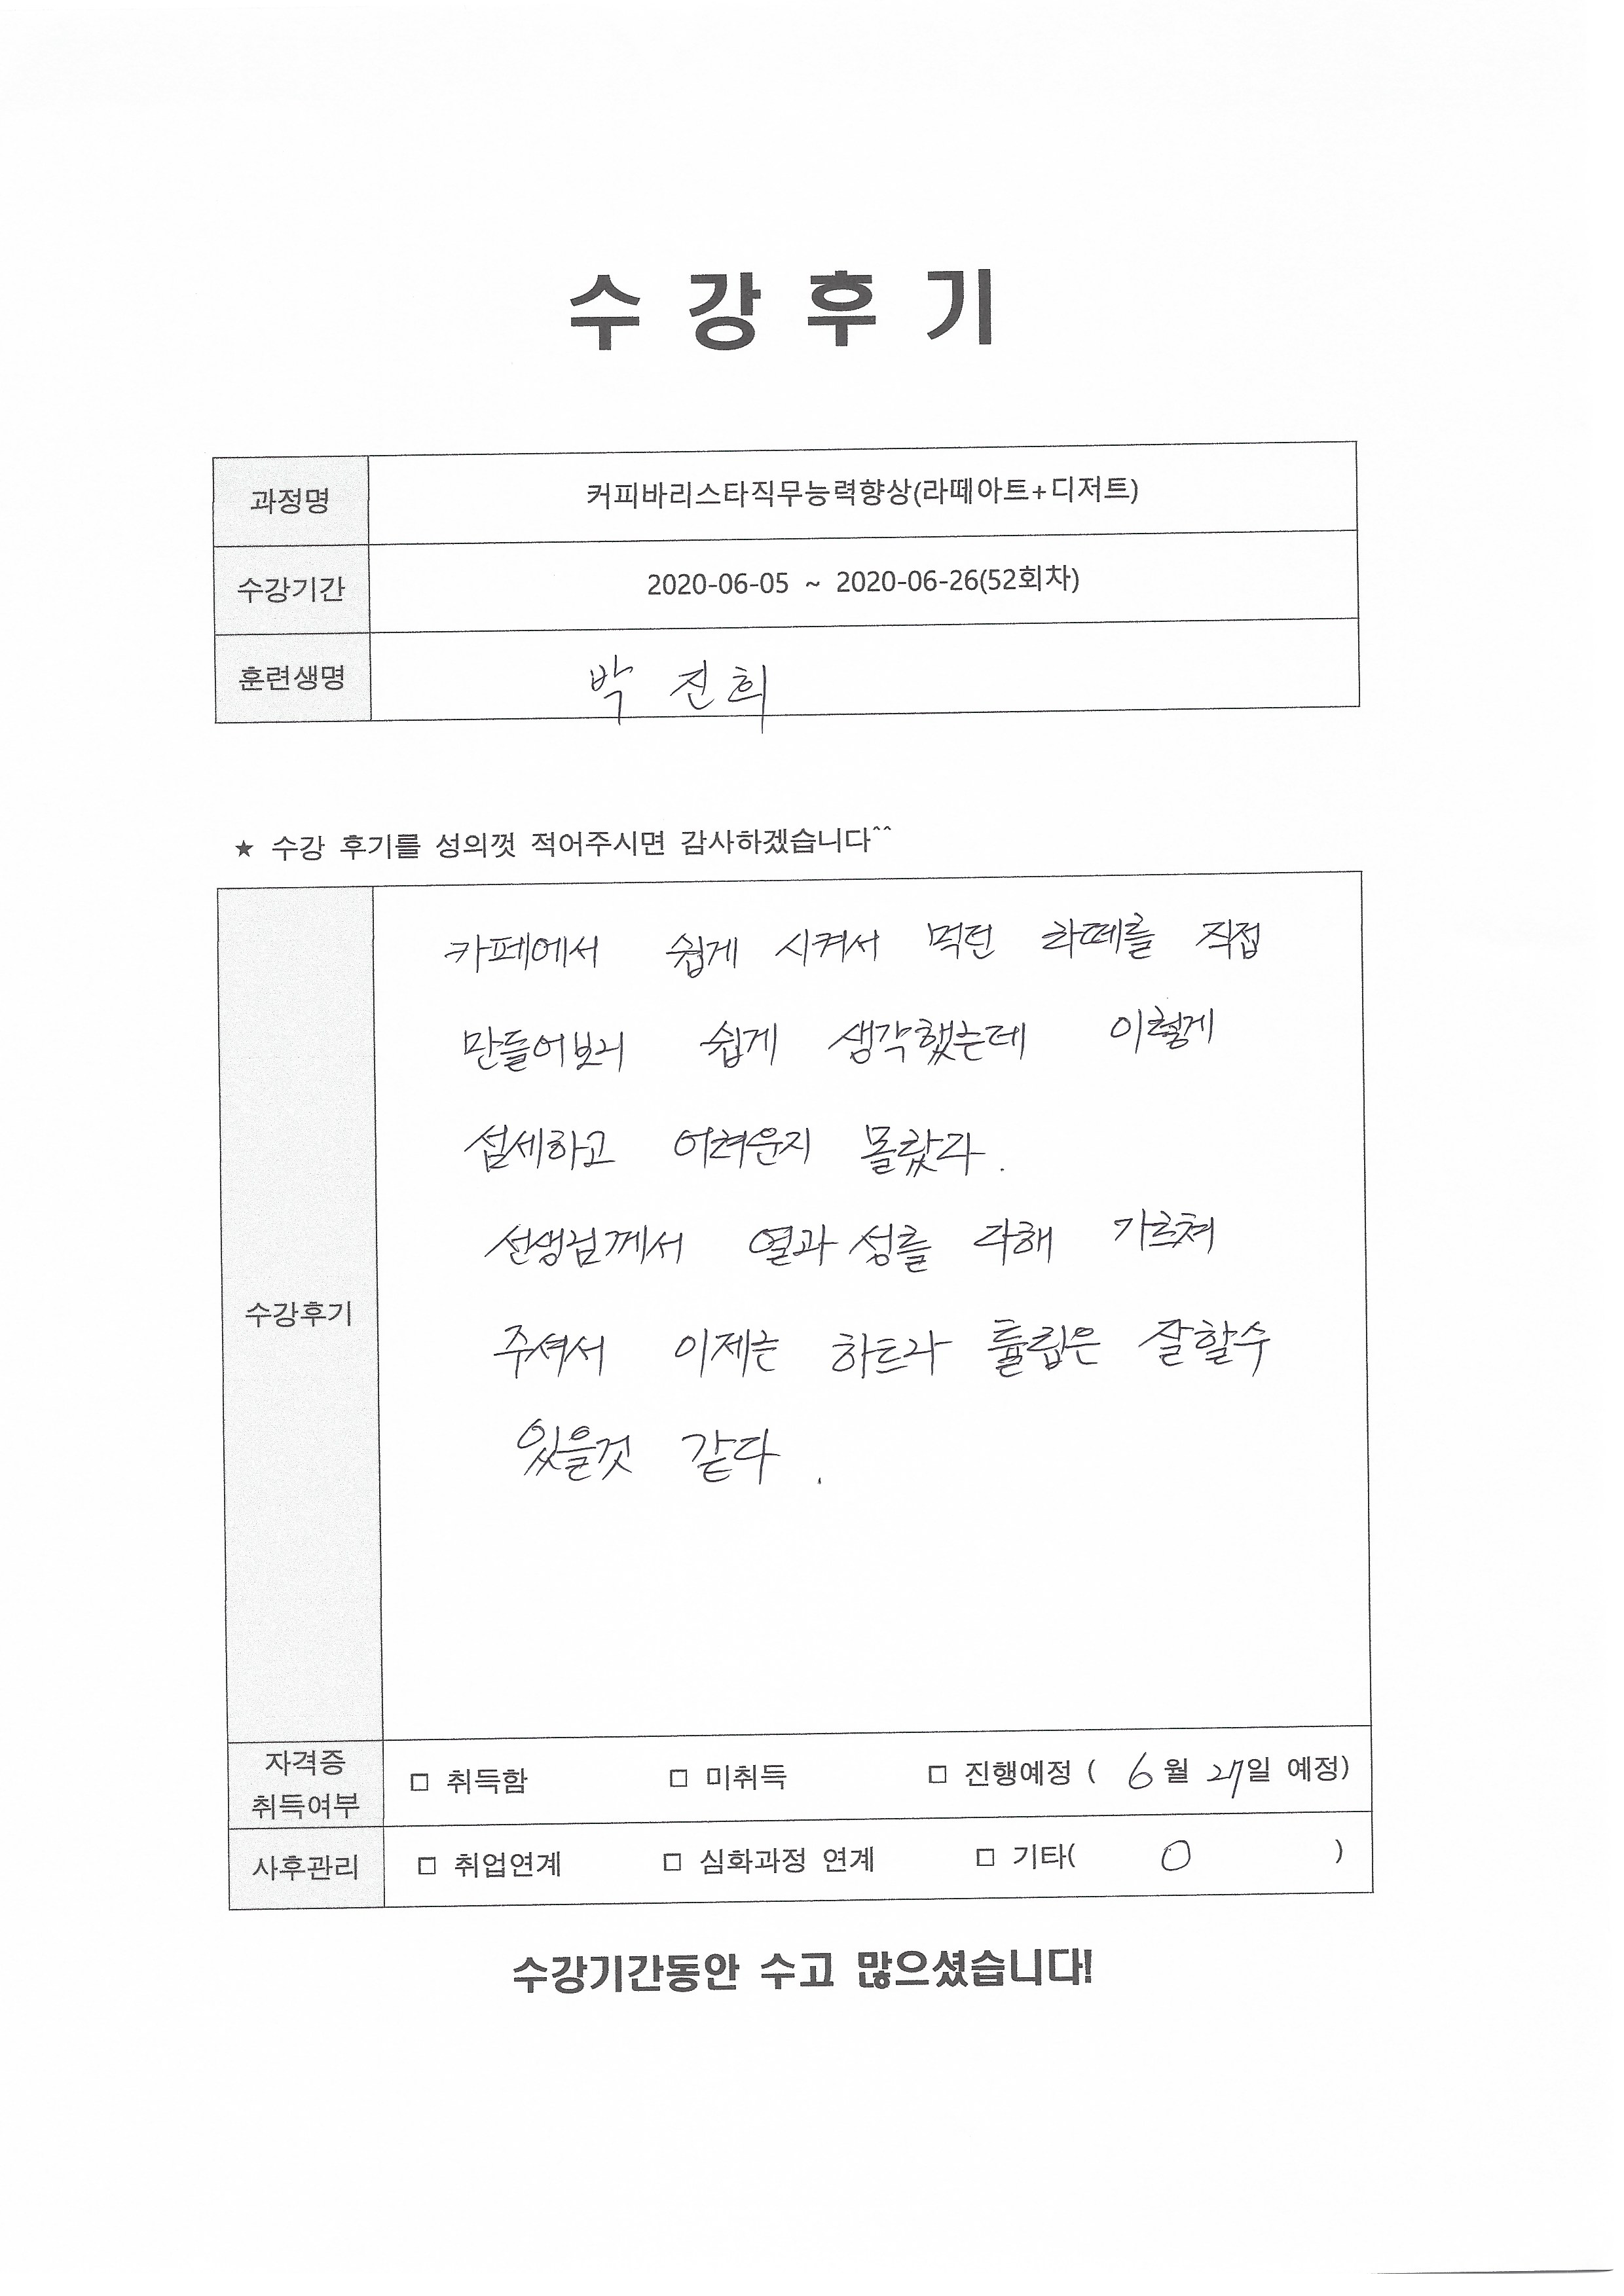 수 강 후 기
과정명 커피바리스타직무능력향상(라떼아트+디저트)
수강기간 2020-06-05 ~ 2020-06-26(52회차)
훈련생명 박 진희
★ 수강 후기를 성의껏 적어주시면 감사하겠습니다^^
카페에서 쉽게 시켜서 먹던 라떼를 직접
만들어보니 쉽게 생각했는데 이렇게
섬세하고 어려운지 몰랐다.
선생님께서 열과 성를 다해 가르쳐
수강후기
주셔서 이제는 하트과 튤립은 잘할수
있을것 같다.
자격증
취득여부
□ 취득함 □ 미취득 □ 진행예정 ( 6월 27일 예정)
사후관리 □ 취업연계 □ 심화과정 연계 □ 기타( O )
수강기간동안 수고 많으셨습니다!